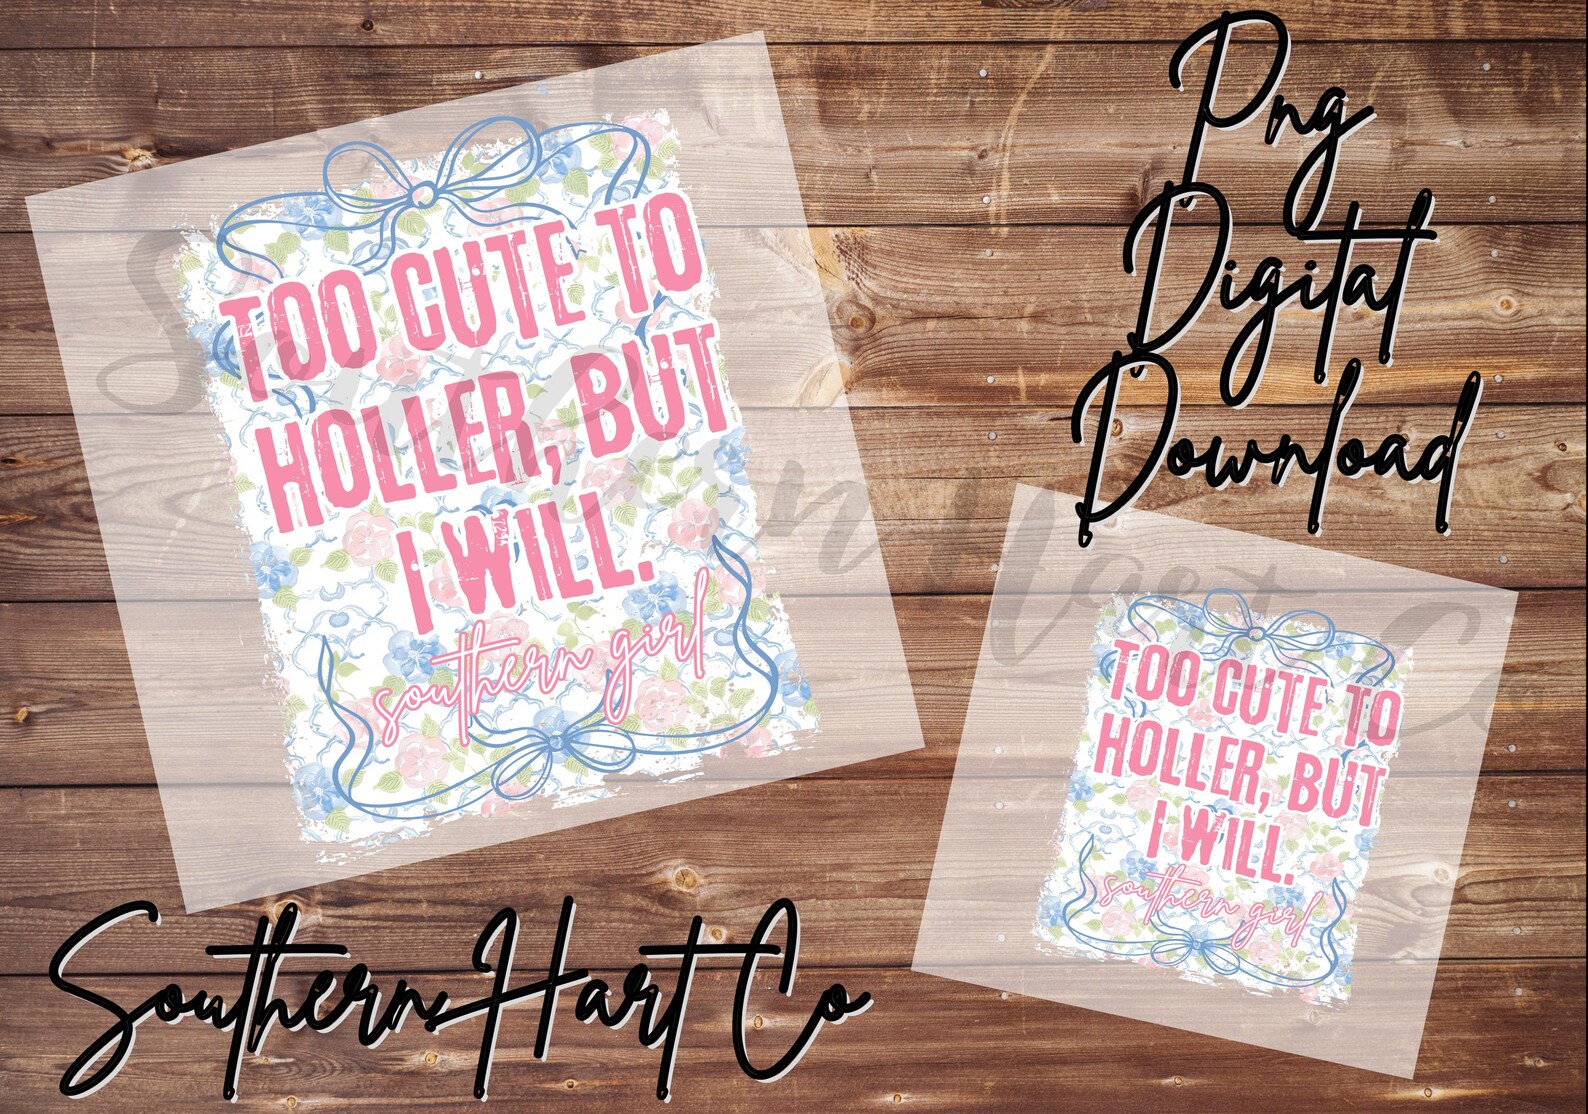 TOO CUTE TO
HOLLER, BUT
I WILL.
southern girl
Png
Digital
Download
TOO CUTE TO
HOLLER, BUT
I WILL.
southern girl
Southern Hart Co
Southern Hart Co